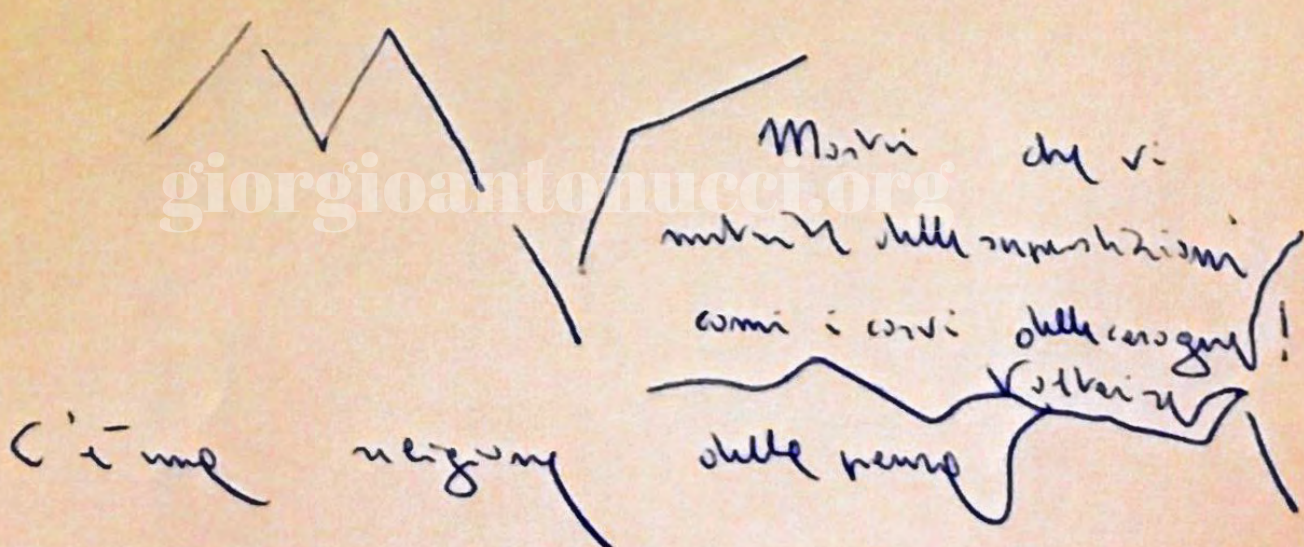 giorgioantonucci.org
Mostri che vi
nutrite delle superstizioni
come i corvi delle carogne!
Voltaire
C'è una religione della paura